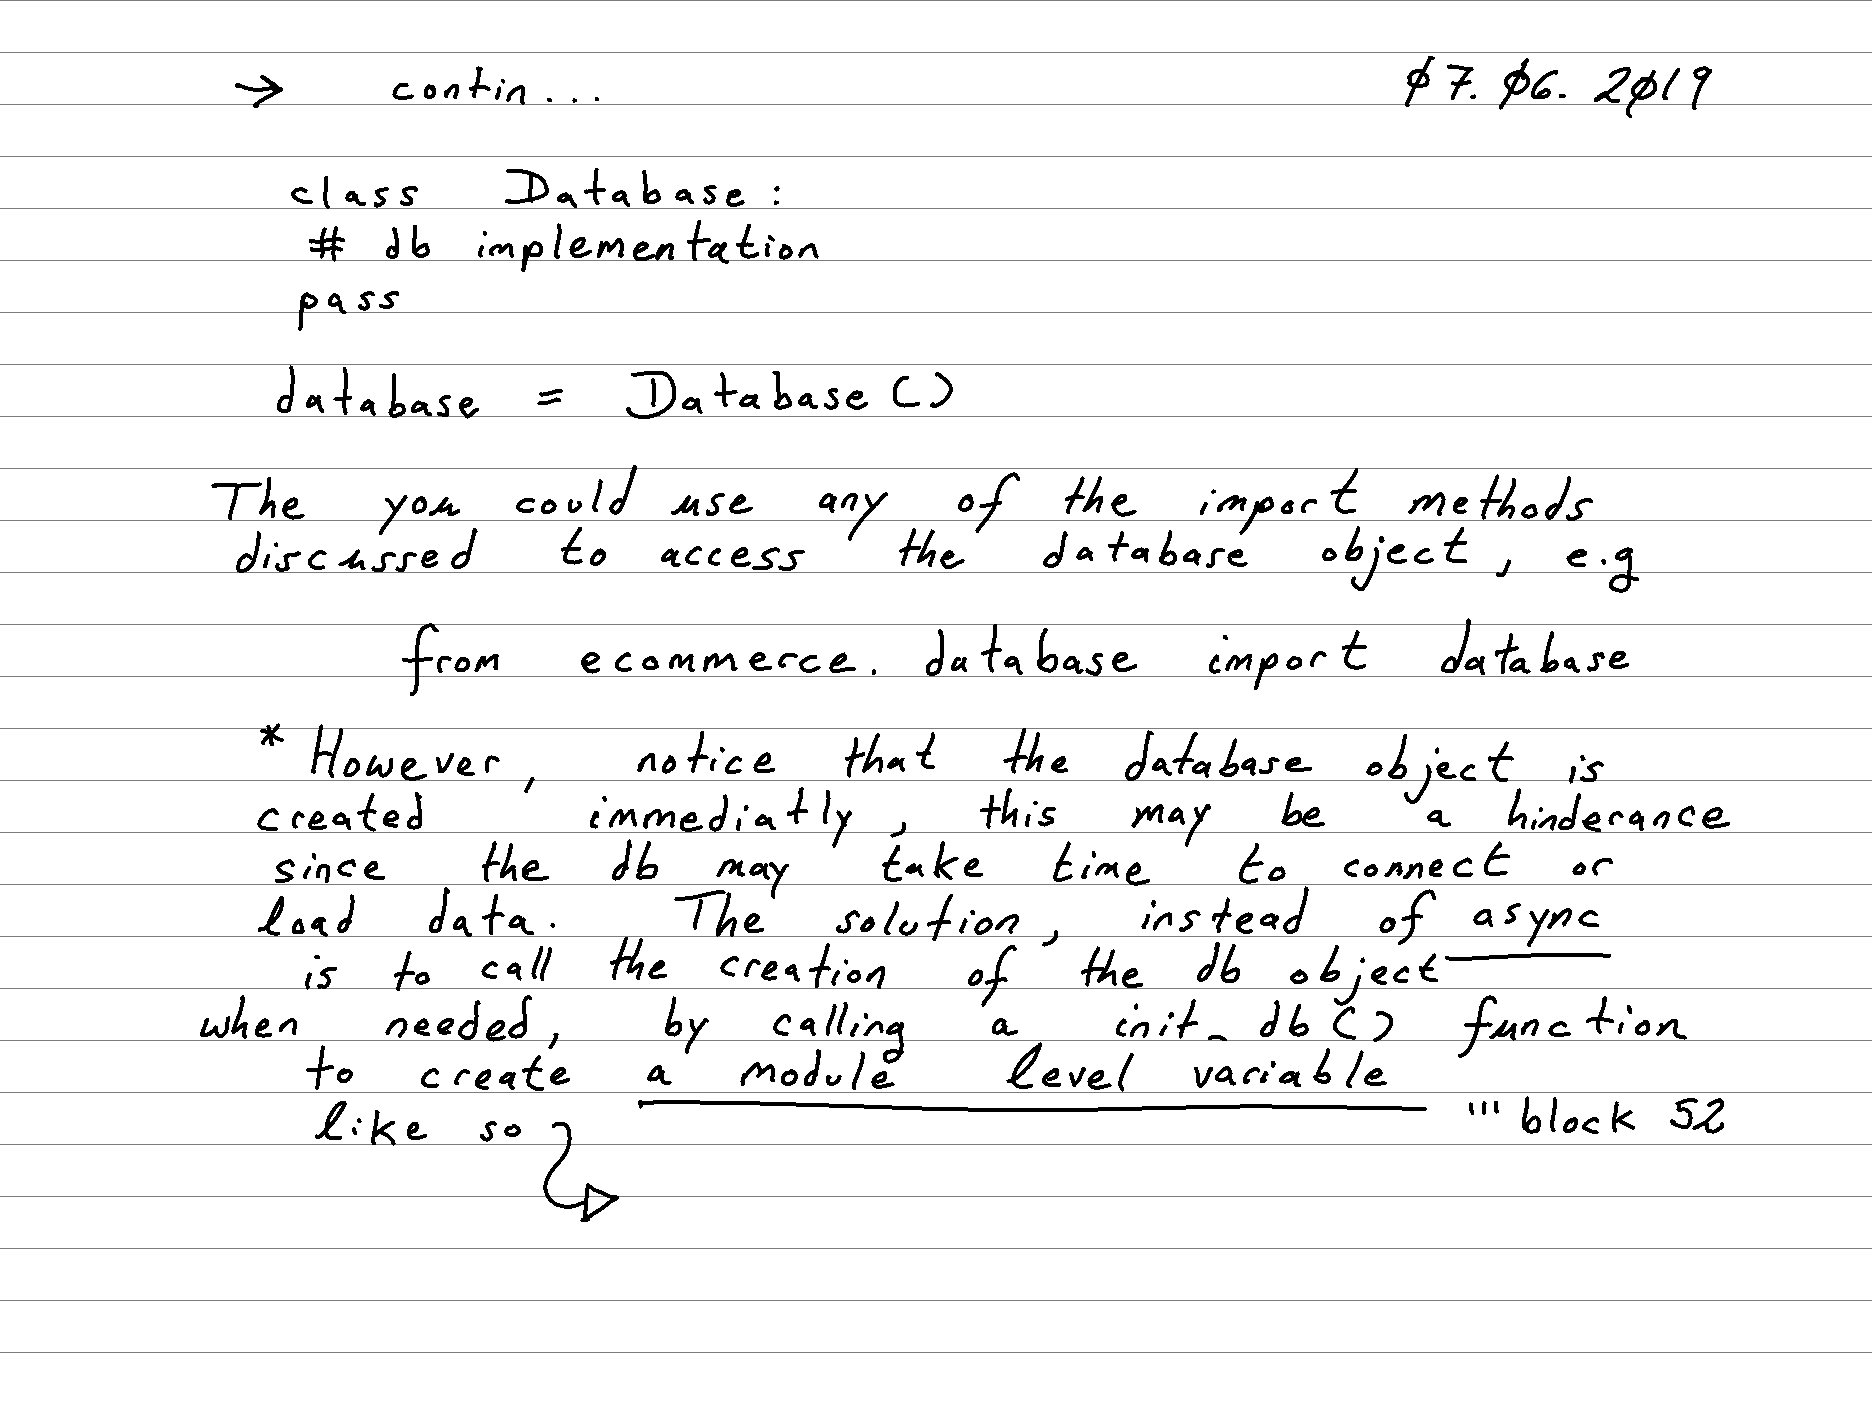 → contin... 07.06.2019
class Database:
# db implementation
pass
database = Database()
The you could use any of the import methods
discussed to access the database object, e.g
from ecommerce.database import database
* However, notice that the database object is
created immediatly, this may be a hinderance
since the db may take time to connect or
load data. The solution, instead of async
is to call the creation of the db object
when needed, by calling a init_db() function
to create a module level variable
like so '''block 52